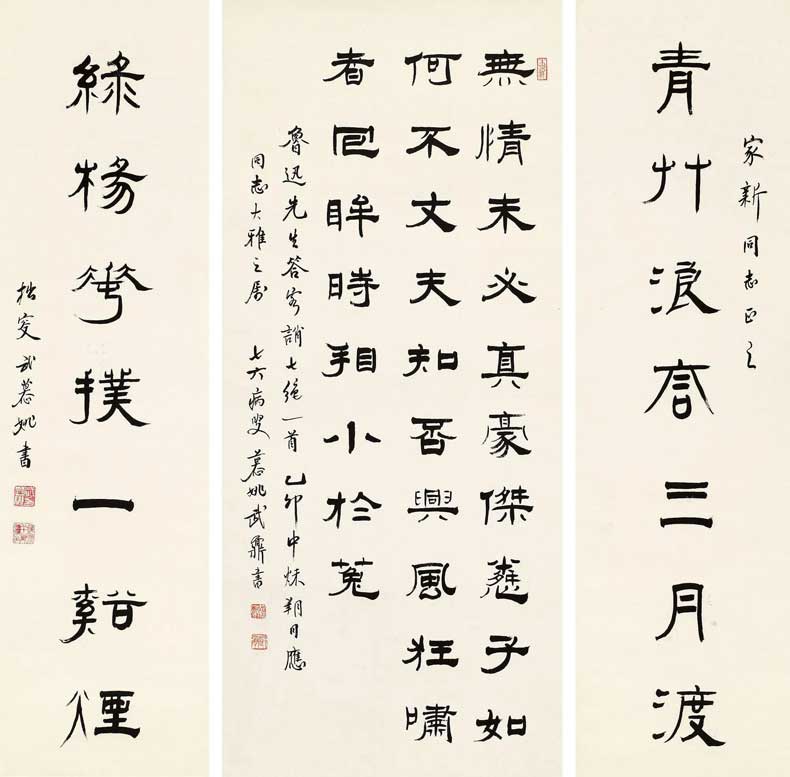 家新同志正之
青艸浪高三月渡
無情未必真豪傑憐子如
何不丈夫知否興風狂嘯
者回眸時相小於菟
魯迅先生答客誚七絕一首 乙卯中秋朔日應
同志大雅之屬 七六病叟慕姚武鼐書
綠楊華撲一谿煙
拙叟武慕姚書